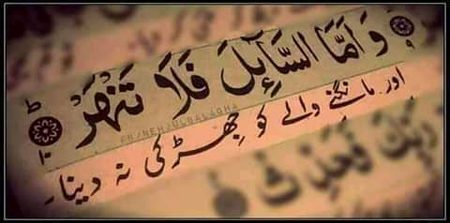 وَ اَمَّا السَّآىِٕلَ فَلَا تَنْهَرْ
FB/NEHJULBALAGHA
اور مانگنے والے کو جھڑکی نہ دینا۔
فَحَدِّثْ